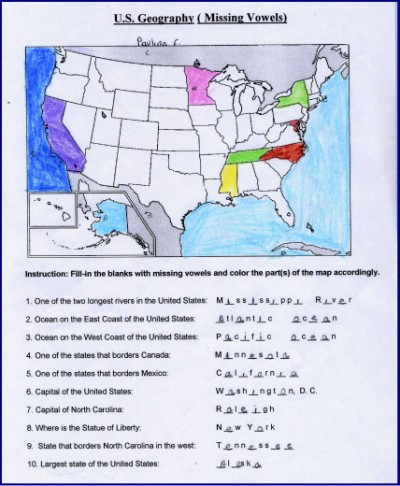 U.S. Geography ( Missing Vowels)
Paulina F.
Instruction: Fill-in the blanks with missing vowels and color the part(s) of the map accordingly.
1. One of the two longest rivers in the United States: Mississippi River
2. Ocean on the East Coast of the United States: Atlantic ocean
3. Ocean on the West Coast of the United States: Pacific ocean
4. One of the states that borders Canada: Minnesota
5. One of the states that borders Mexico: California
6. Capital of the United States: Washington, D.C.
7. Capital of North Carolina: Raleigh
8. Where is the Statue of Liberty: New York
9. State that borders North Carolina in the west: Tennessee
10. Largest state of the United States: Alaska